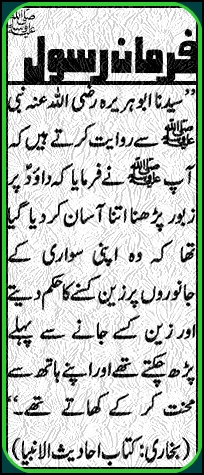 صلى الله عليه وسلم
فرمان رسول
”سیدنا ابوہریرہ رضی اللہ عنہ نبی
صلى الله عليه وسلم سے روایت کرتے ہیں کہ
آپ صلى الله عليه وسلم نے فرمایا کہ داؤدؑ پر
زبور پڑھنا اتنا آسان کر دیا گیا
تھا کہ وہ اپنی سواری کے
جانوروں پر زین کسنے کا حکم دیتے
اور زین کسے جانے سے پہلے
پڑھ چکتے تھے اور اپنے ہاتھ سے
محنت کر کے کھاتے تھے۔“
(بخاری: کتاب احادیث الانبیا)